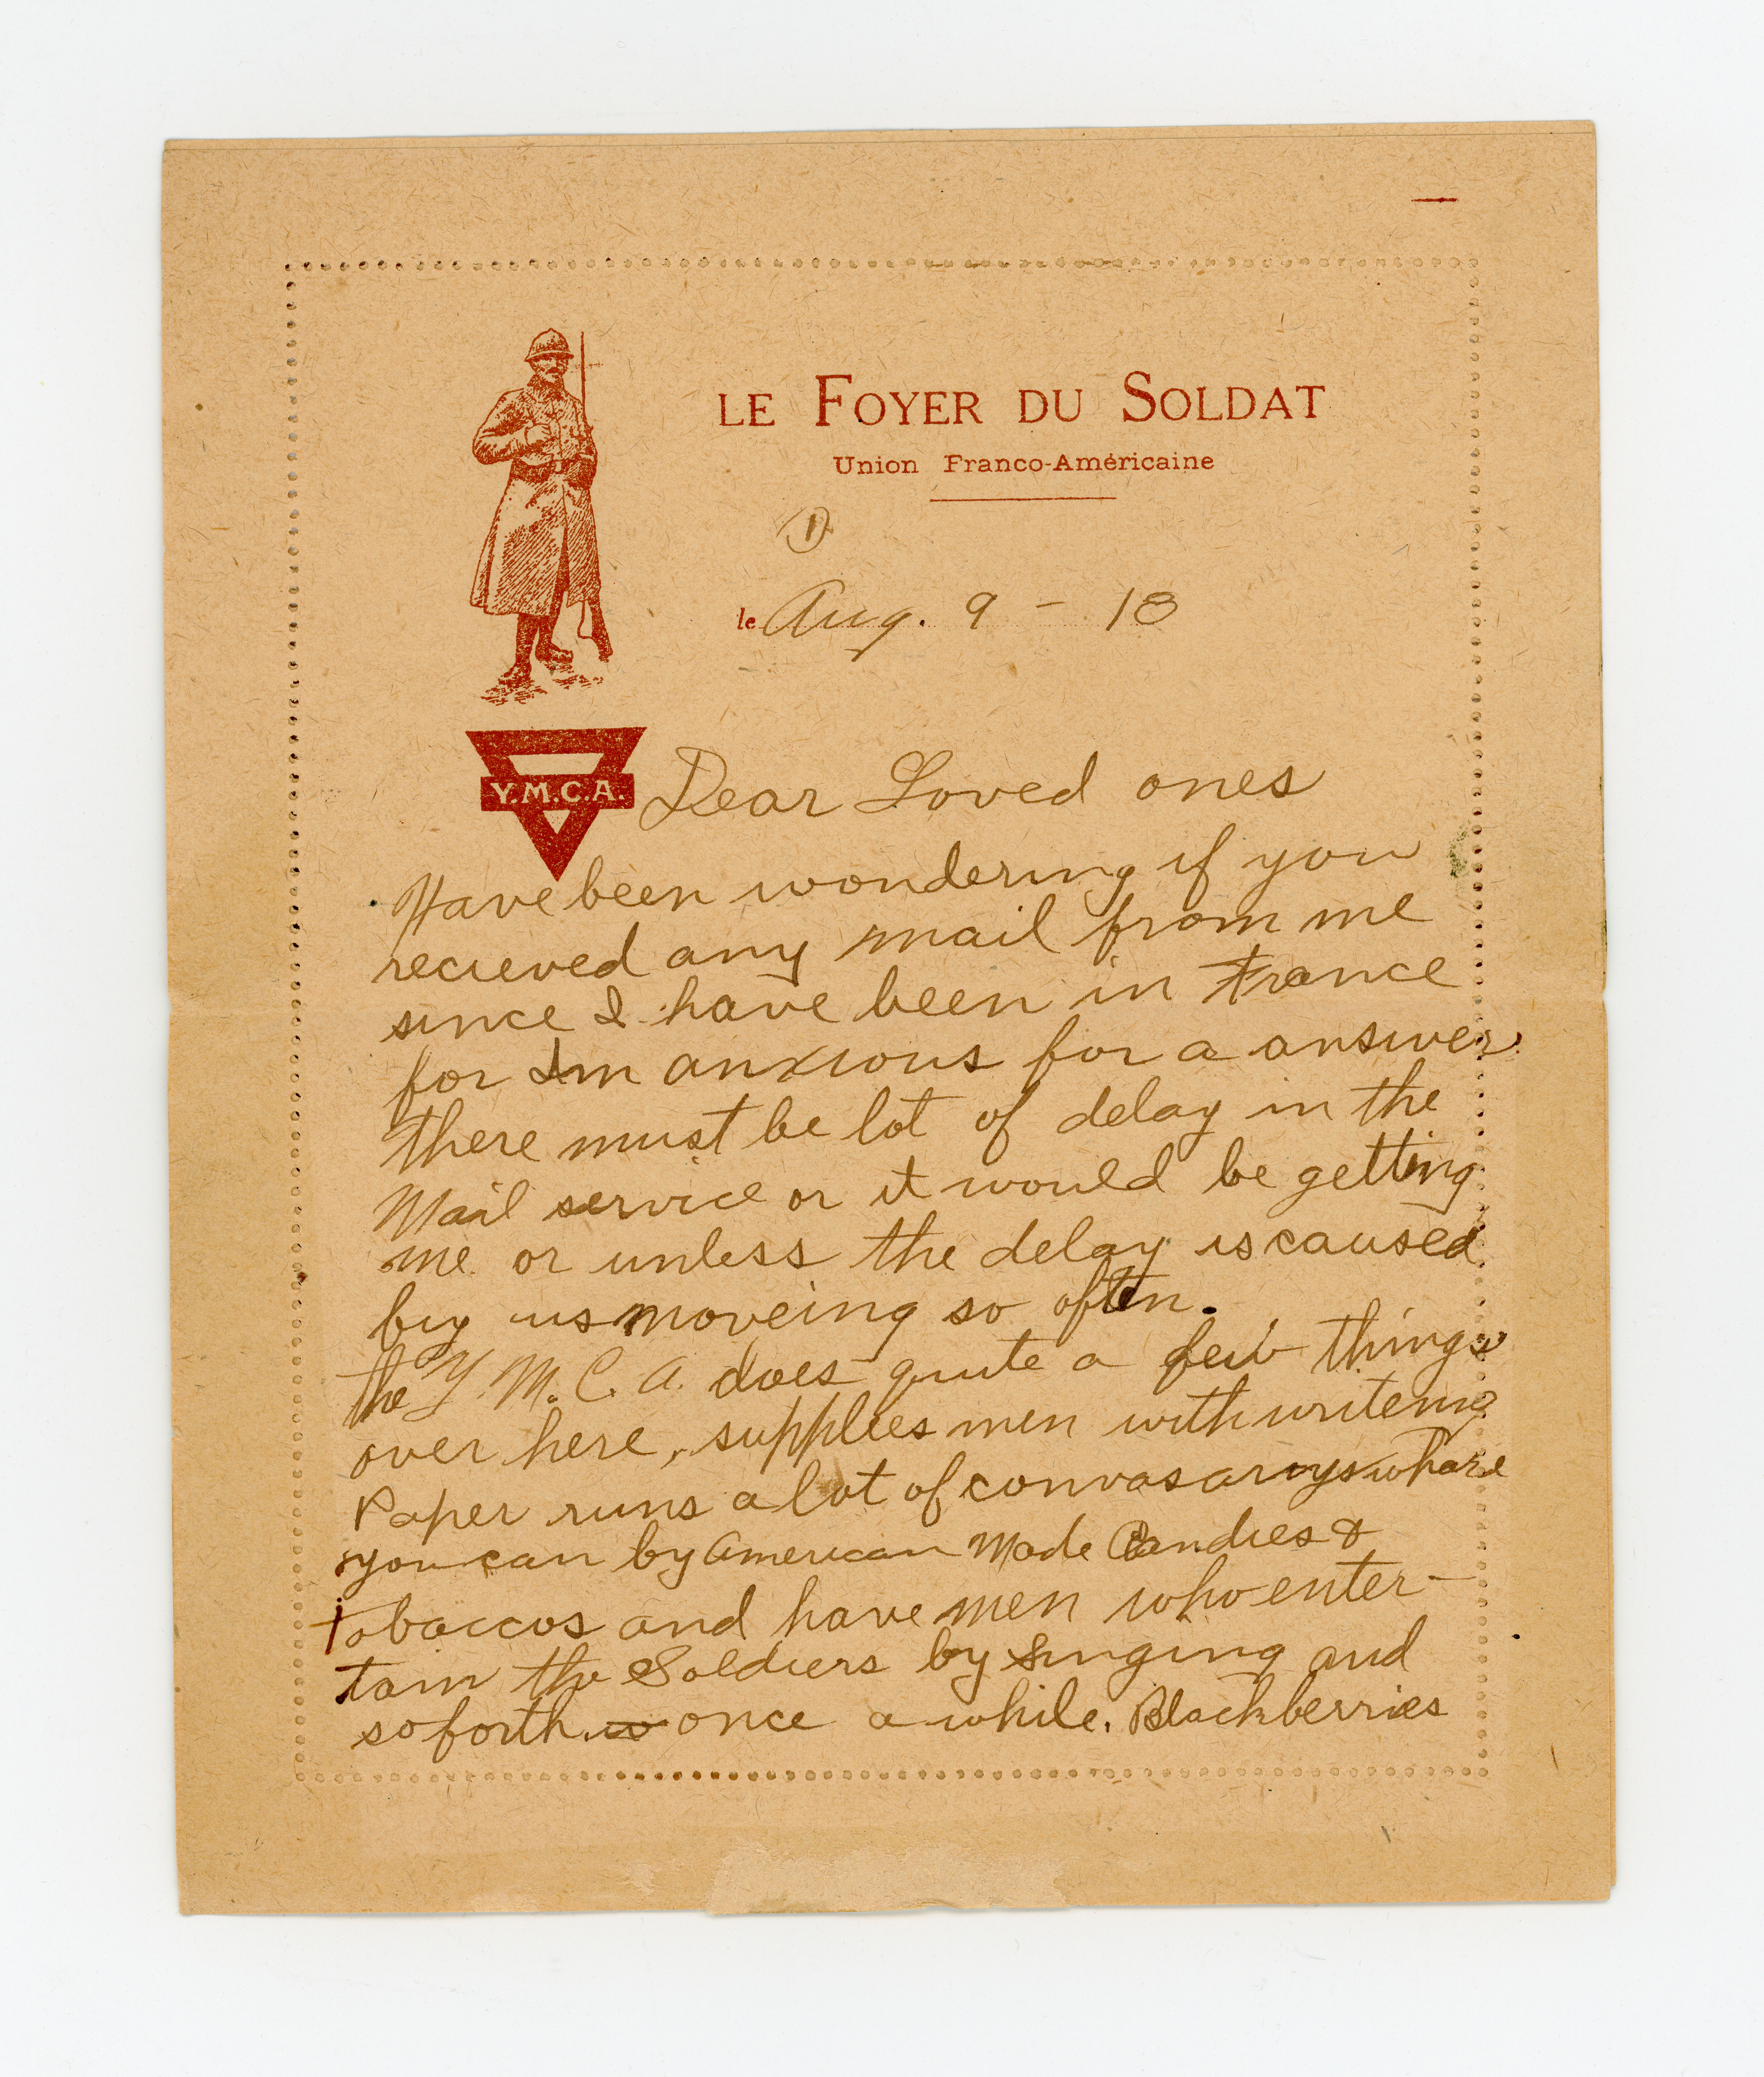 LE FOYER DU SOLDAT
Union Franco-Américaine
1
le Aug. 9 - 18
Y.M.C.A.
Dear Loved ones
Have been wondering if you
recieved any mail from me
since I have been in France
for Im anxious for a answer
there must be lot of delay in the
Mail service or it would be getting
me or unless the delay is caused
by us moveing so often.
the Y. M. C. A. does quite a few things
over here, supplies men with writeing
Paper runs a lot of convasarys whare
you can by American Made Candies &
tobaccos and have men who enter-
tain the Soldiers by singing and
so forth w once a while. Blackberries